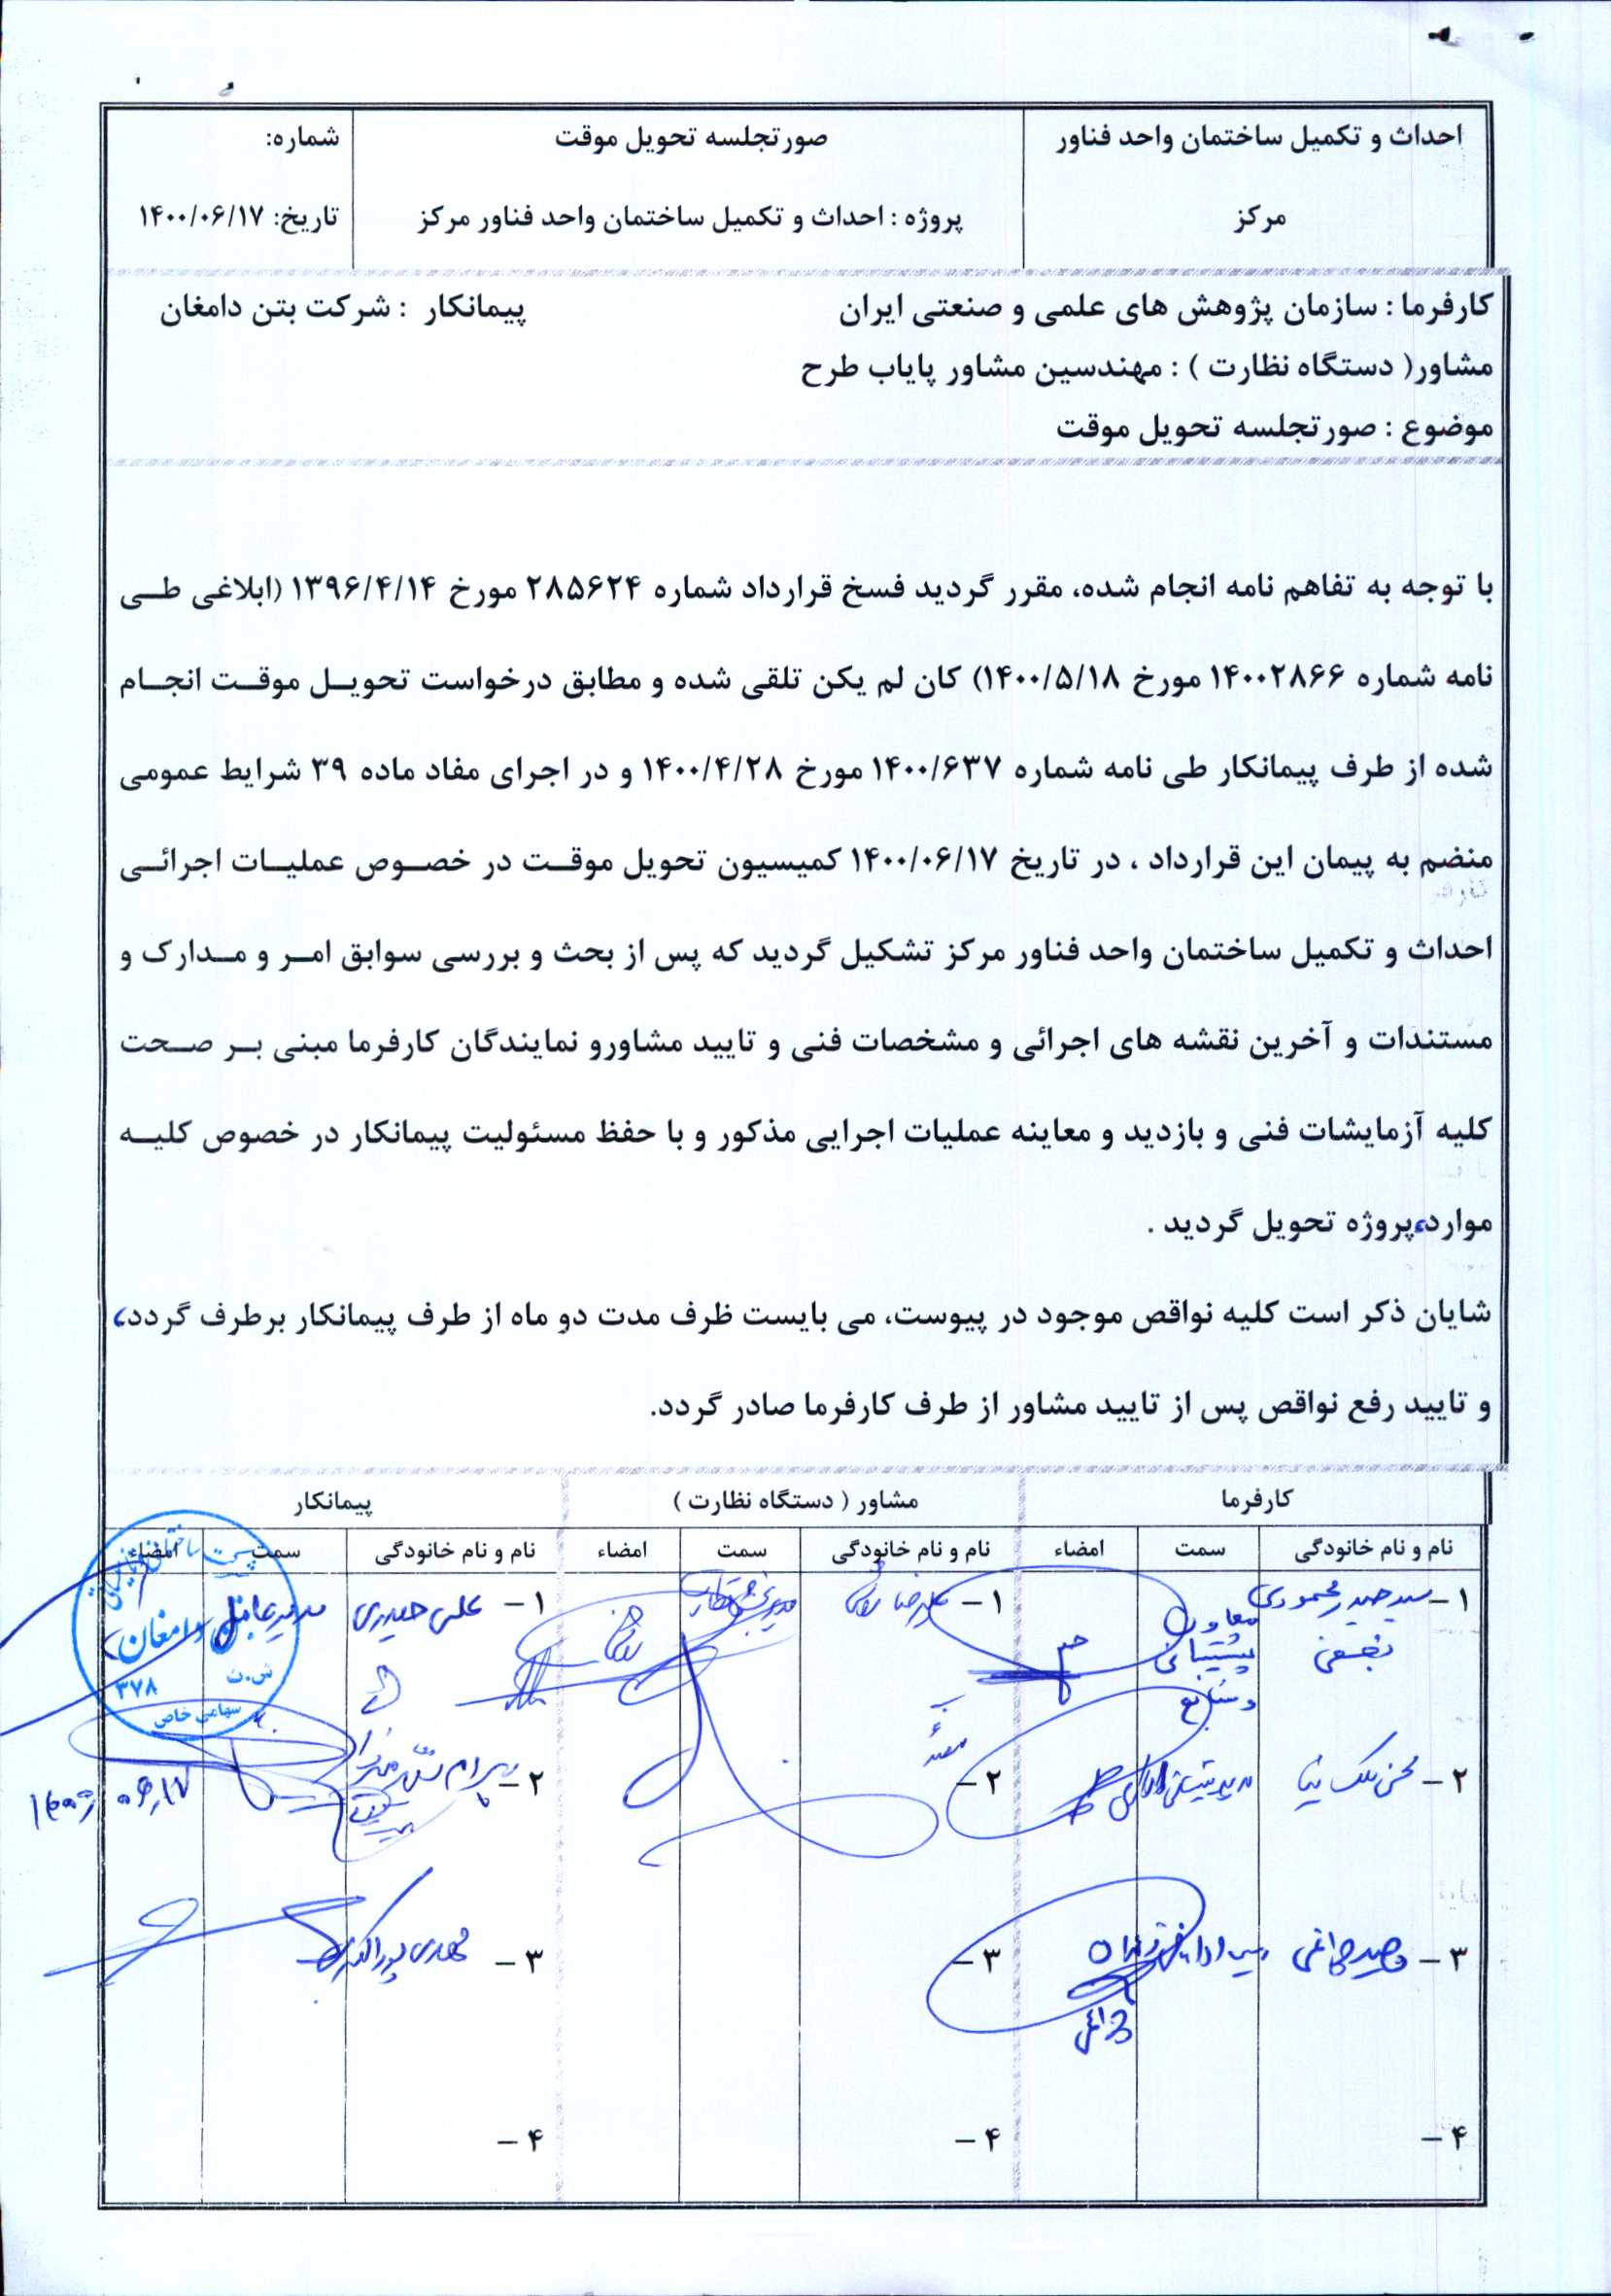 احداث و تکمیل ساختمان واحد فناور
مرکز
صورتجلسه تحویل موقت
پروژه : احداث و تکمیل ساختمان واحد فناور مرکز
شماره:
تاریخ: ۱۴۰۰/۰۶/۱۷
کارفرما : سازمان پژوهش های علمی و صنعتی ایران پیمانکار : شرکت بتن دامغان
مشاور( دستگاه نظارت ) : مهندسین مشاور پایاب طرح
موضوع : صورتجلسه تحویل موقت
با توجه به تفاهم نامه انجام شده، مقرر گردید فسخ قرارداد شماره ۲۸۵۶۲۴ مورخ ۱۳۹۶/۴/۱۴ (ابلاغی طی
نامه شماره ۱۴۰۰۲۸۶۶ مورخ ۱۴۰۰/۵/۱۸) کان لم یکن تلقی شده و مطابق درخواست تحویل موقت انجام
شده از طرف پیمانکار طی نامه شماره ۱۴۰۰/۶۳۷ مورخ ۱۴۰۰/۴/۲۸ و در اجرای مفاد ماده ۳۹ شرایط عمومی
منضم به پیمان این قرارداد ، در تاریخ ۱۴۰۰/۰۶/۱۷ کمیسیون تحویل موقت در خصوص عملیات اجرائی
احداث و تکمیل ساختمان واحد فناور مرکز تشکیل گردید که پس از بحث و بررسی سوابق امر و مدارک و
مستندات و آخرین نقشه های اجرائی و مشخصات فنی و تایید مشاورو نمایندگان کارفرما مبنی بر صحت
کلیه آزمایشات فنی و بازدید و معاینه عملیات اجرایی مذکور و با حفظ مسئولیت پیمانکار در خصوص کلیه
موارد، پروژه تحویل گردید .
شایان ذکر است کلیه نواقص موجود در پیوست، می بایست ظرف مدت دو ماه از طرف پیمانکار برطرف گردد،
و تایید رفع نواقص پس از تایید مشاور از طرف کارفرما صادر گردد.
کارفرما مشاور ( دستگاه نظارت ) پیمانکار
نام و نام خانودگی سمت امضاء نام و نام خانودگی سمت امضاء نام و نام خانودگی سمت امضاء
۱- سید حیدر محمودی
نجفی
معاون
پشتیبانی
و منابع
۱- علیرضا
۱- علی حیدری مدیرعامل
دامغان
ش.ث ۳۷۸
سهامی خاص
۲- محسن ملک نیا
۲-
۲- بهرام
۱۴۰۰/۰۶/۱۷
۳- وحید چراغی
چراغی
۳-
۳- مهدی پوراکبری
۴-
۴-
۴-